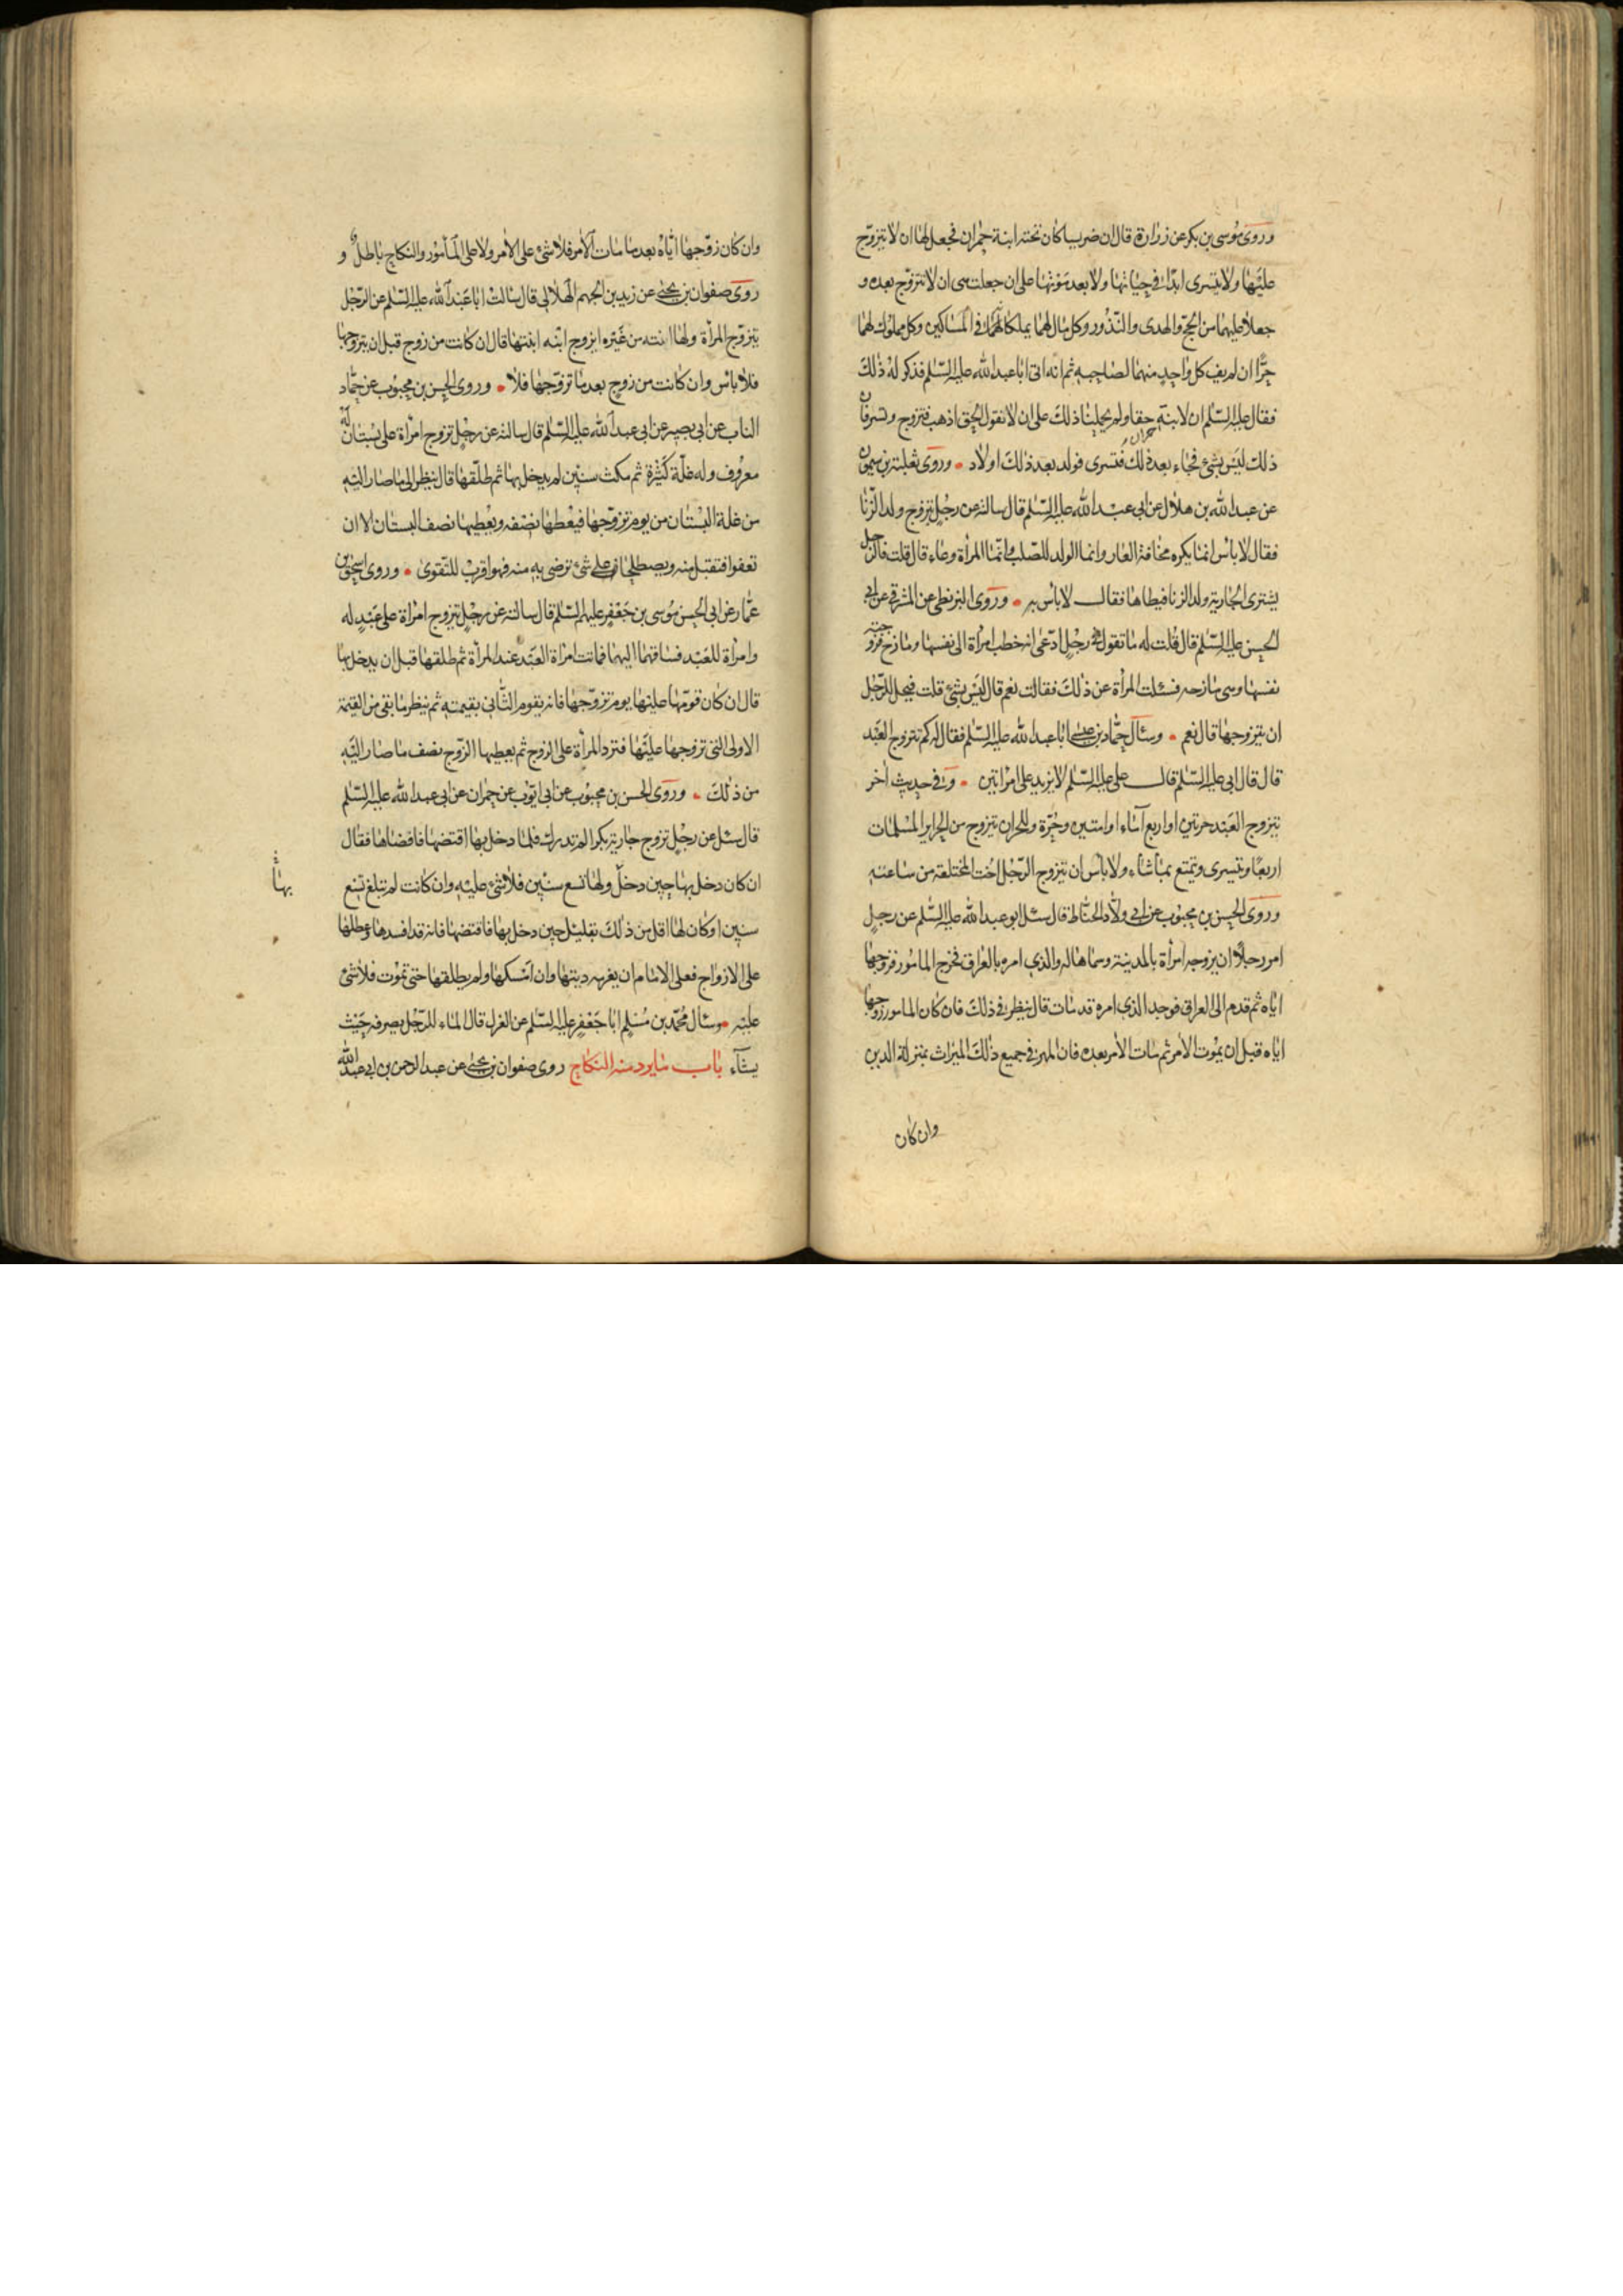 وروى موسى بن بكر عن زرارة قال ان ضريسا كان تحته ابنة حمران فجعل لها ان لا يتزوج
عليها ولا يتسرى ابدا في حياتها ولا بعد موتها على ان جعلت هى ان لا تتزوج بعده و
جعلا عليهما من الحج والهدى والنذور وكل مال لهما يملكانه في المساكين وكل مملوك لهما
حرّا ان لم يف كل واحد منهما لصاحبه ثم انه اتى ابا عبد الله عليه السّلم فذكر له ذلك
فقال عليه السّلم ان لابنة حمران حقا ولم يحملنا ذلك على ان لا نقول الحق اذهب فتزوج وتسر فان
ذلك ليس بشئ فجاء بعد ذلك فتسرى فولد بعد ذلك اولاد • وروى ثعلبة بن ميمون
عن عبد الله بن هلال عن ابى عبد الله عليه السّلم قال سالته عن رجل يتزوج ولد الزنا
فقال لا باس انما يكره مخافة العار وانما الولد للصلب وانما المرأة وعاء قال قلت فالرجل
يشترى الجارية ولد الزنا فيطاها فقال لا باس به • وروى البزنطى عن المشرقى عن ابى
الحسن عليه السّلم قال قلت له ما تقول في رجل ادّعى انه خطب امرأة الى نفسها ومازح فزوجته
نفسها وهى مازحه فسئلت المرأة عن ذلك فقالت نعم قال ليس بشئ قلت فيحل للرّجل
ان يتزوجها قال نعم • وسأل حمّاد بن عيسى ابا عبد الله عليه السّلم فقال له كم يتزوج العبد
قال قال ابى عليه السّلم قال على عليه السّلم لا يزيد على امراتين • وفي حديث اخر
يتزوج العبد حرتين او اربع اماء او امتين وحرّة وللحر ان يتزوج من الحراير المسلمات
اربعًا ويتسرى ويتمتع بما شاء ولا باس ان يتزوج الرّجل اخت المختلعة من ساعته
وروى الحسن بن محبوب عن ابى ولّاد الحنّاط قال سئل ابو عبد الله عليه السّلم عن رجل
امر رجلًا ان يزوجه امرأة بالمدينة وسماها له والذى امره بالعراق فخرج المامور فزوجها
اياه ثم قدم الى العراق فوجد الذى امره قد مات قال ينظر في ذلك فان كان المامور زوجها
اياه قبل ان يموت الآمر ثم مات الآمر بعده فان المهر في جميع ذلك الميراث بمنزلة الدين
وان كان
وان كان زوّجها اياه بعد ما مات الآمر فلا شئ على الآمر ولا على المأمور والنكاح باطل و
روى صفوان بن يحيى عن زيد بن الجهم الهلالى قال سالت ابا عبد الله عليه السّلم عن الرّجل
يتزوّج المرأة ولها ابنة من غيره ايزوج ابنه ابنتها قال ان كانت من زوج قبل ان يتزوجها
فلا باس وان كانت من زوج بعد ما تزوّجها فلا • وروى الحسن بن محبوب عن حمّاد
الناب عن ابى بصير عن ابى عبد الله عليه السّلم قال سالته عن رجل تزوج امرأة على بستان له
معروف وله غلّة كثيرة ثم مكث سنين لم يدخل بها ثم طلّقها قال ينظر الى ما صار اليه
من غلة البستان من يوم تزوّجها فيعطها نصفه ويعطيها نصف البستان الا ان
تعفوا فتقبل منه ويصطلحا على شئ ترضى به منه فهو اقرب للتّقوى • وروى اسحق بن
عمّار عن ابى الحسن موسى بن جعفر عليهم السّلم قال سالته عن رجل يتزوج امرأة على عبد له
وامرأة للعبد فساقهما اليها فماتت امرأة العبد عند المرأة ثم طلقها قبل ان يدخل بها
قال ان كان قومّها عليها يوم تزوّجها فانه يقوم الثّانى بقيمته ثم ينظر ما بقى من القيمة
الاولى التى تزوجها عليها فترد المرأة على الزوج ثم يعطيها الزّوج نصف ما صار اليه
من ذلك • وروى الحسن بن محبوب عن ابى ايّوب عن حمران عن ابى عبد الله عليه السّلم
قال سئل عن رجل تزوج جارية بكرا لم تدرك فلما دخل بها اقتضها فافضاها فقال
ان كان دخل بها حين دخل ولها تسع سنين فلا شئ عليه وان كانت لم تبلغ تسع
بها
سنين او كان لها اقل من ذلك بقليل حين دخل بها فاقتضها فانه قد افسدها وعطلها
على الازواج فعلى الامام ان يغرمه ديتها وان امسكها ولم يطلقها حتى تموت فلا شئ
عليه • وسأل محمّد بن مسلم ابا جعفر عليه السّلم عن العزل قال الماء للرّجل يصرفه حيث
يشآء باب ما يرد منه النكاح روى صفوان بن يحيى عن عبد الرحمن بن ابى عبد الله